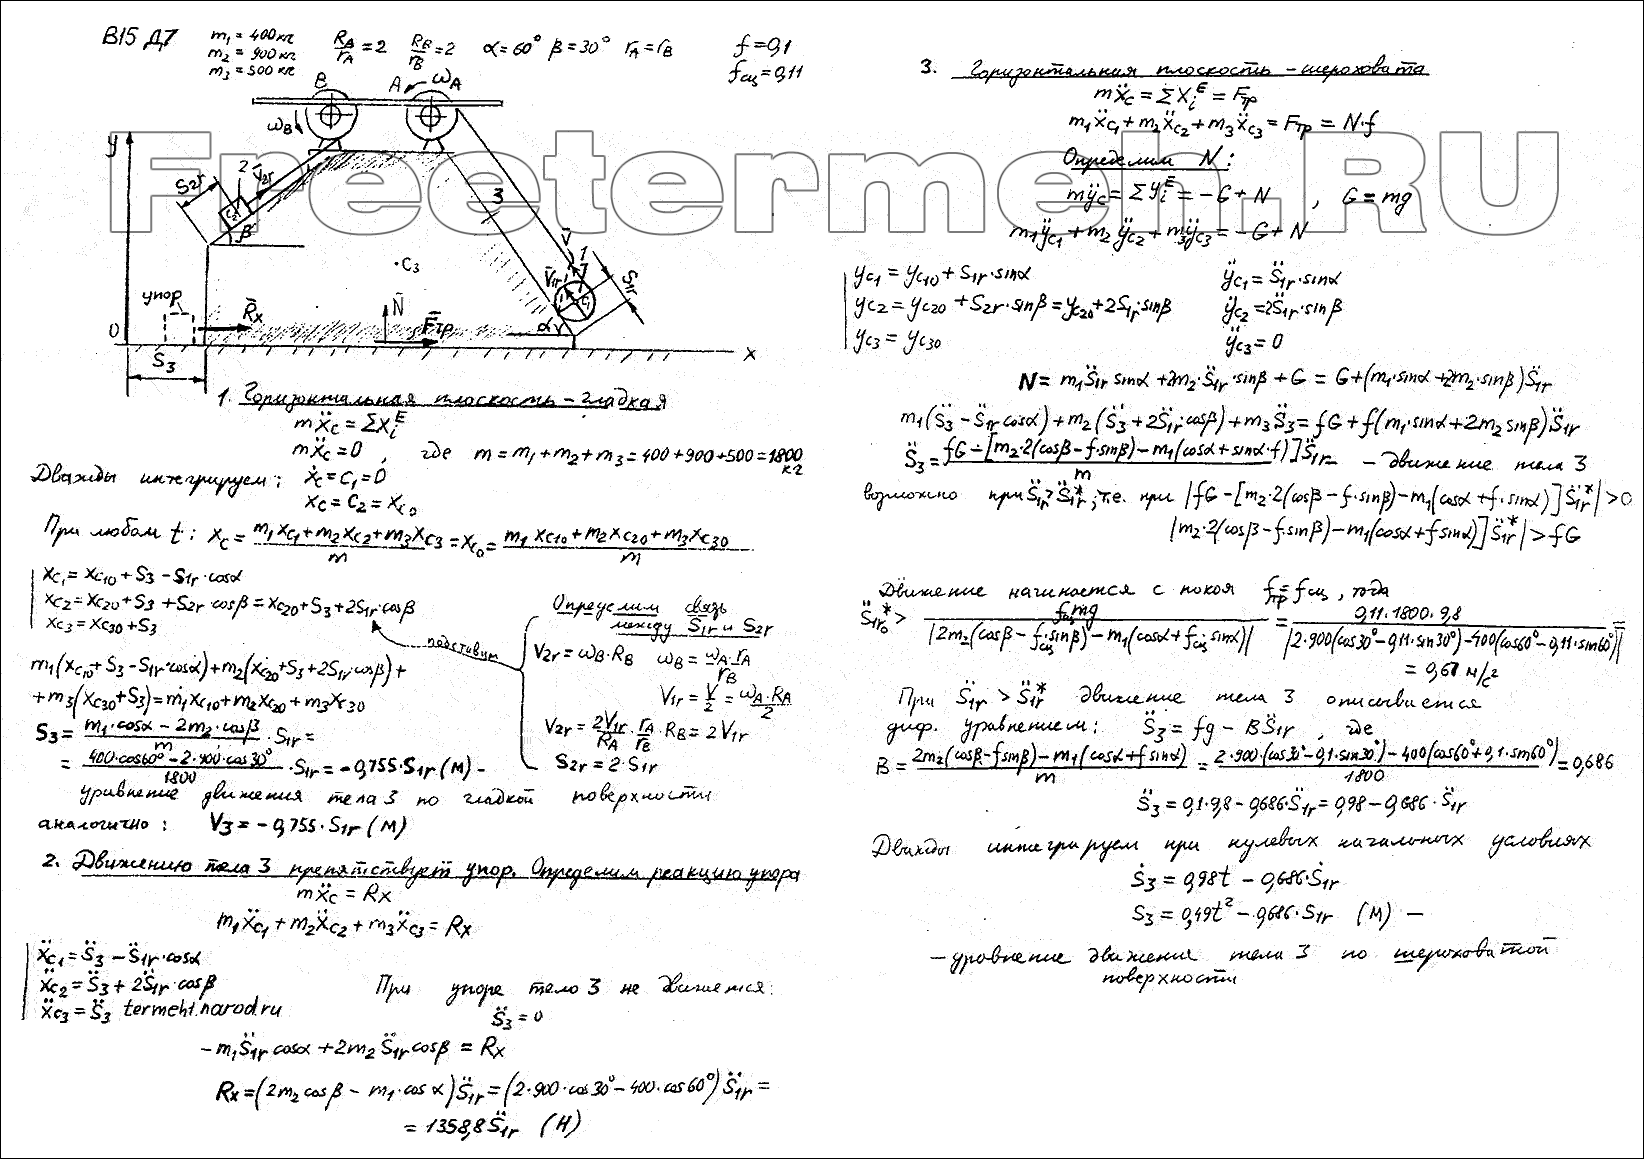 В15 Д7
m₁ = 400кг
m₂ = 900кг
m₃ = 500кг
R_A/r_A = 2 R_B/r_B = 2 α = 60° β = 30° r_A = r_B
f = 0,1
f_сц = 0,11
B A ω_A
ω_B
y
S₂r 2 V̄₂r
C₂
β
3
V̄
1
V̄₁r
C₁
S₁r
·C₃
упор
R̄x
N̄
F̄тр
α
0
x
S₃
Freetermeh.RU
1. Горизонтальная плоскость – гладкая
mẍc = ΣXᵢᴱ
mẍc = 0 , где m = m₁ + m₂ + m₃ = 400 + 900 + 500 = 1800 кг
Дважды интегрируем: ẋc = C₁ = 0
xc = C₂ = xc₀
При любом t: xc = (m₁xc₁ + m₂xc₂ + m₃xc₃)/m = xc₀ = (m₁xc₁₀ + m₂xc₂₀ + m₃xc₃₀)/m
xc₁ = xc₁₀ + S₃ – S₁r·cosα
xc₂ = xc₂₀ + S₃ + S₂r·cosβ = xc₂₀ + S₃ + 2S₁r·cosβ
xc₃ = xc₃₀ + S₃
подставим
Определим связь
между S₁r и S₂r
V₂r = ω_B·R_B ω_B = ω_A·r_A/r_B
V₁r = V/2 = ω_A·R_A/2
V₂r = 2V₁r/R_A · r_A/r_B · R_B = 2V₁r
S₂r = 2·S₁r
m₁(xc₁₀ + S₃ – S₁r·cosα) + m₂(xc₂₀ + S₃ + 2S₁r cosβ) +
+ m₃(xc₃₀ + S₃) = m₁xc₁₀ + m₂xc₂₀ + m₃xc₃₀
S₃ = (m₁·cosα – 2m₂·cosβ)/m · S₁r =
= (400·cos60° – 2·900·cos30°)/1800 · S₁r = –0,755·S₁r (м) –
уравнение движения тела 3 по гладкой поверхности
аналогично: V₃ = –0,755·Ṡ₁r (м)
2. Движению тела 3 препятствует упор. Определим реакцию упора
mẍc = Rx
m₁ẍc₁ + m₂ẍc₂ + m₃ẍc₃ = Rx
ẍc₁ = S̈₃ – S̈₁r·cosα
ẍc₂ = S̈₃ + 2S̈₁r cosβ
ẍc₃ = S̈₃ termeh1.narod.ru
При упоре тело 3 не движется:
S̈₃ = 0
–m₁S̈₁r cosα + 2m₂S̈₁r cosβ = Rx
Rx = (2m₂cosβ – m₁·cosα)S̈₁r = (2·900·cos30° – 400·cos60°)S̈₁r =
= 1358,8 S̈₁r (Н)
3. Горизонтальная плоскость – шероховата
mẍc = ΣXᵢᴱ = Fтр
m₁ẍc₁ + m₂ẍc₂ + m₃ẍc₃ = Fтр = N·f
Определим N:
mÿc = ΣYᵢᴱ = –G + N , G = mg
m₁ÿc₁ + m₂ÿc₂ + m₃ÿc₃ = –G + N
yc₁ = yc₁₀ + S₁r·sinα ÿc₁ = S̈₁r·sinα
yc₂ = yc₂₀ + S₂r·sinβ = yc₂₀ + 2S₁r·sinβ ÿc₂ = 2S̈₁r·sinβ
yc₃ = yc₃₀ ÿc₃ = 0
N = m₁S̈₁r sinα + 2m₂·S̈₁r·sinβ + G = G + (m₁·sinα + 2m₂·sinβ)S̈₁r
m₁(S̈₃ – S̈₁r cosα) + m₂(S̈₃ + 2S̈₁r·cosβ) + m₃S̈₃ = fG + f(m₁·sinα + 2m₂sinβ)S̈₁r
S̈₃ = (fG – [m₂·2(cosβ – f·sinβ) – m₁(cosα + sinα·f)]S̈₁r)/m – движение тела 3
возможно при S̈₁r > S̈₁r*, т.е. при |fG – [m₂·2(cosβ – f·sinβ) – m₁(cosα + f·sinα)]S̈₁r*| > 0
|m₂·2(cosβ – f sinβ) – m₁(cosα + f sinα)]S̈₁r*| > fG
Движение начинается с покоя fтр = fсц, тогда
S̈₁r₀* > fсц mg/|2m₂(cosβ – fсц·sinβ) – m₁(cosα + fсц·sinα)| = 0,11·1800·9,8/|2·900(cos30° – 0,11·sin30°) – 400(cos60° – 0,11·sin60°)| =
= 0,67 м/с²
При S̈₁r > S̈₁r* движение тела 3 описывается
диф. уравнением: S̈₃ = fg – BS̈₁r , где
B = (2m₂(cosβ – f sinβ) – m₁(cosα + f sinα))/m = (2·900·(cos30° – 0,1·sin30°) – 400(cos60° + 0,1·sin60°))/1800 = 0,686
S̈₃ = 0,1·9,8 – 0,686·S̈₁r = 0,98 – 0,686·S̈₁r
Дважды интегрируем при нулевых начальных условиях
Ṡ₃ = 0,98t – 0,686·Ṡ₁r
S₃ = 0,49t² – 0,686·S₁r (м) –
– уровнение движения тела 3 по шероховатой
поверхности